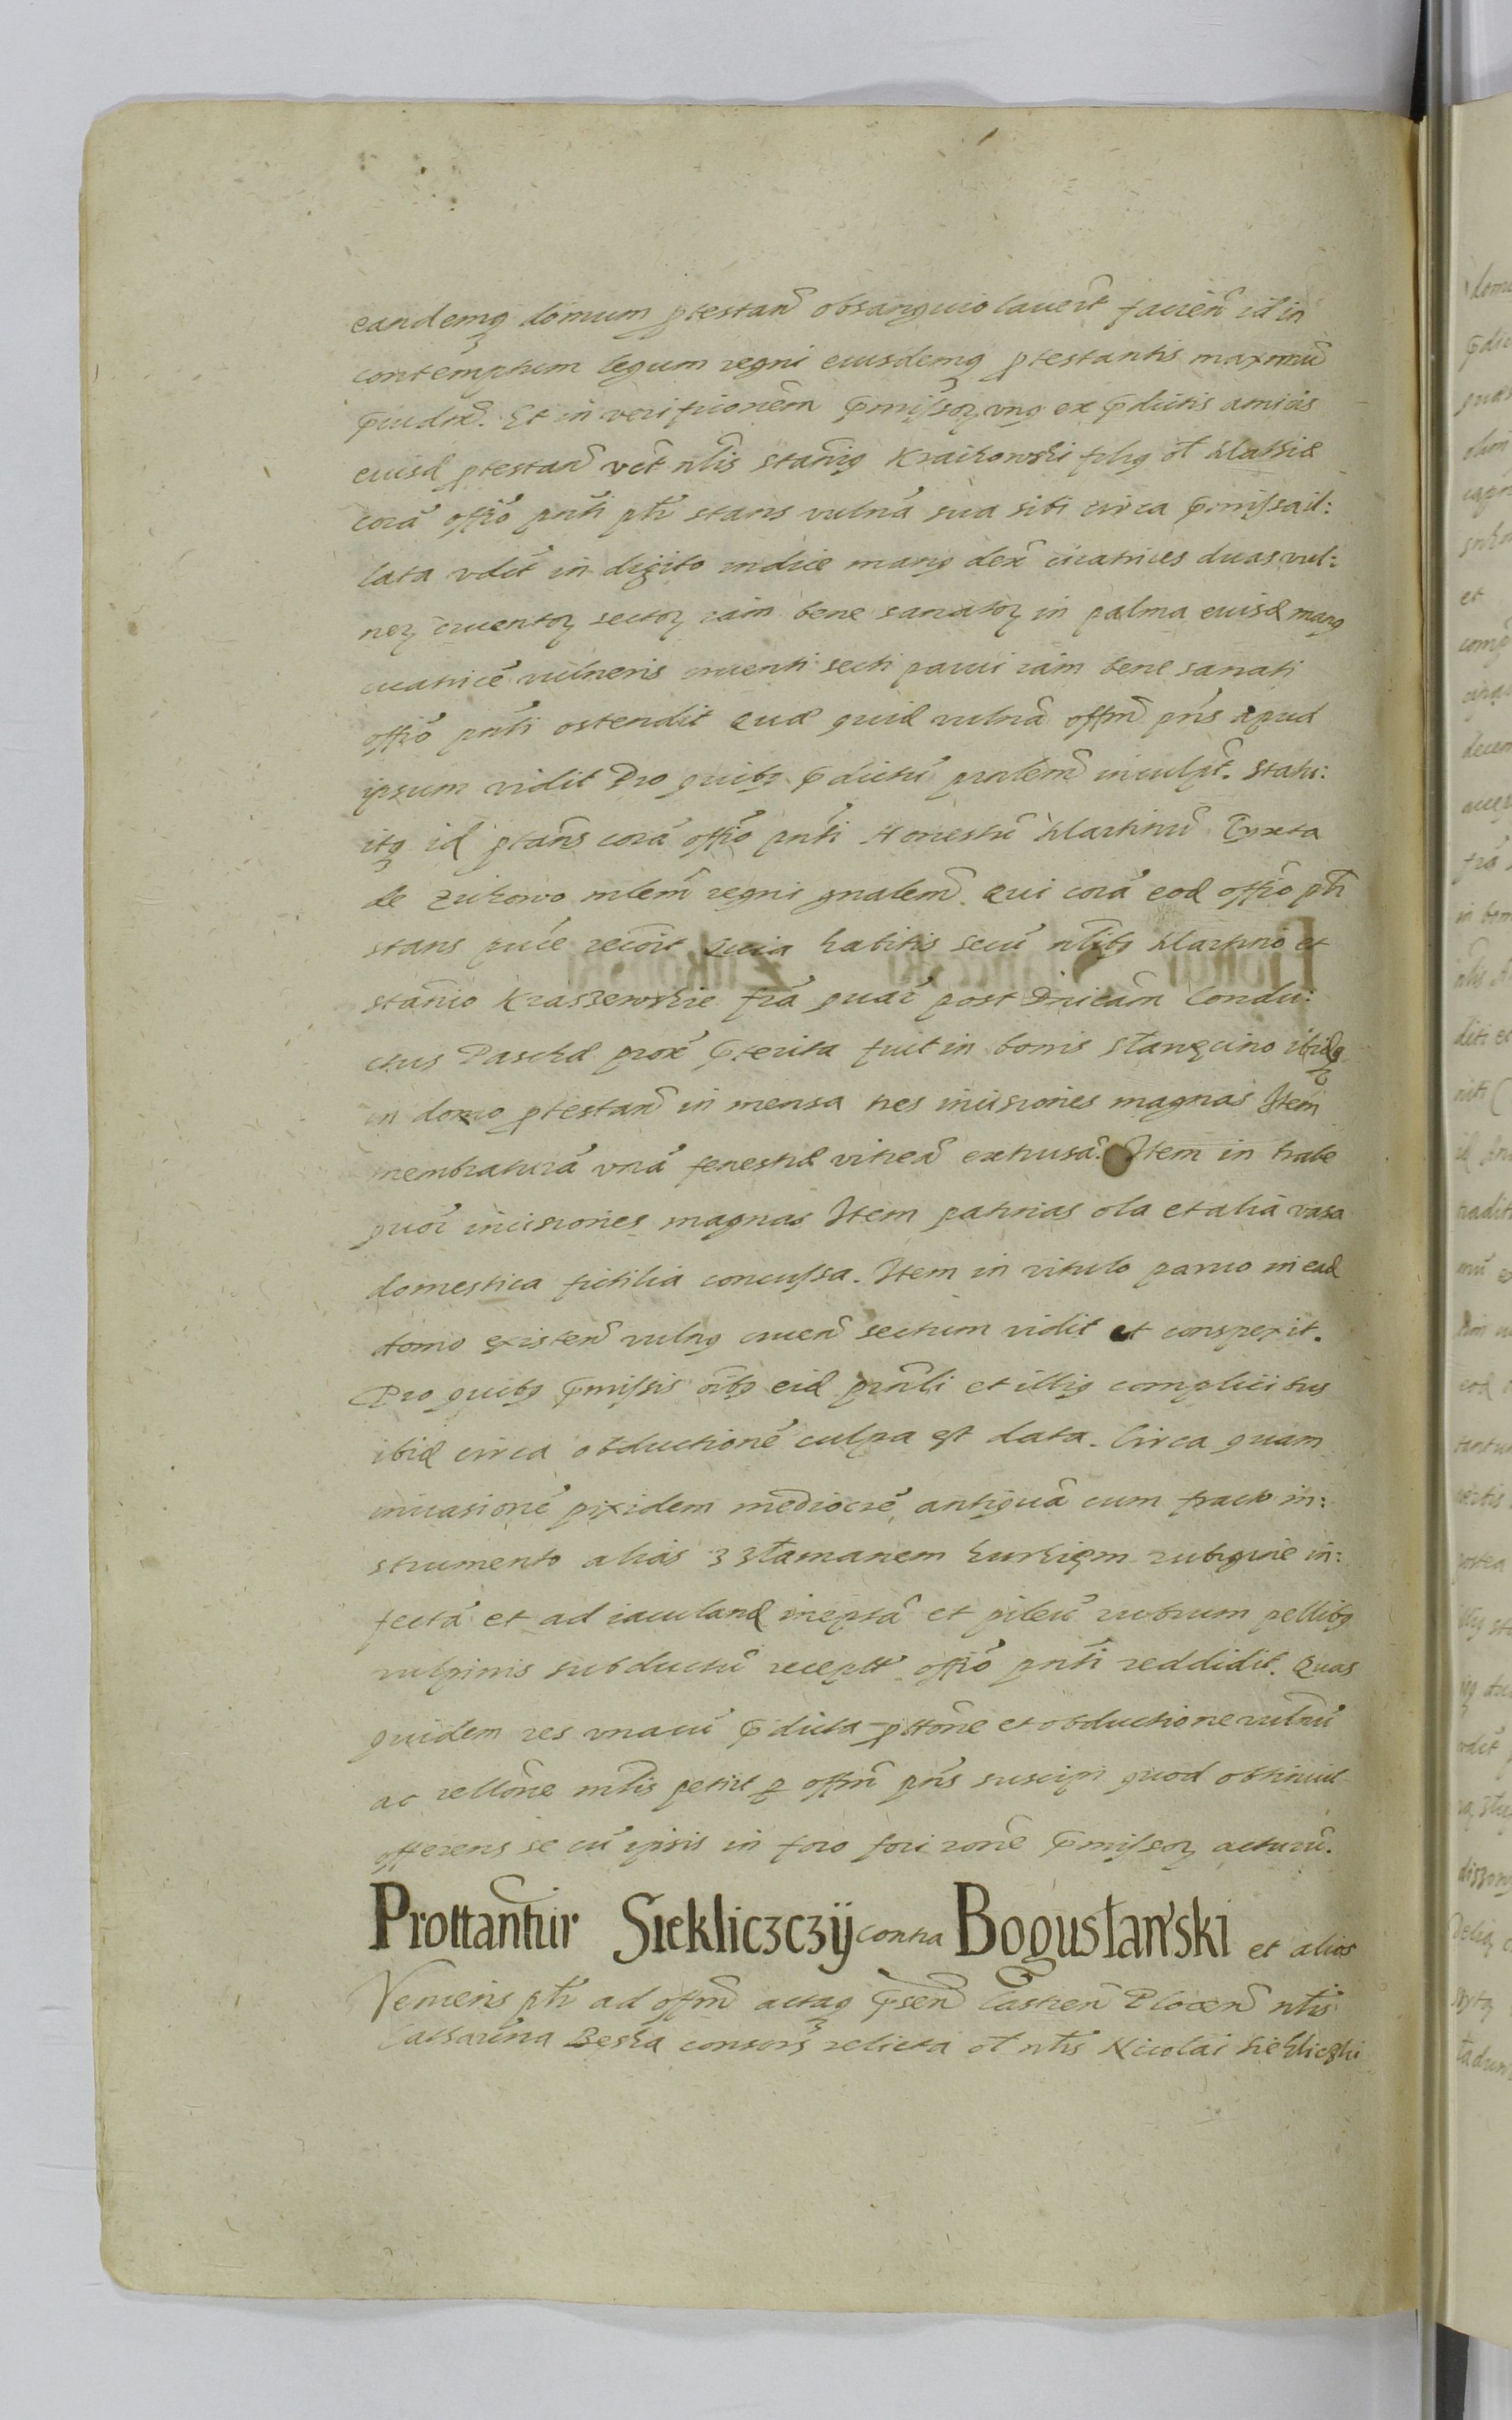 eandemq domum ptestan obsanguiolaverit facien id in
contemptum legum regni eiusdemq ptestantis maximu
piudm. Et in verificionem pmissor vnq ex pdictis amicis
eiusd ptestan vct nlis Staniq Kraikowski filiq ol Mathiae
cora offio pnti ptr stans vulna sua sibi circa pmissa il:
lata vdlt in digito indice manq dex cicatrices duas vul:
ner cruentor sector iam bene sanator in palma eiusd manq
cicatrice vulneris cruenti secti parui iam bene sanati
offio pnti ostendit Quae quid vulna offm pns apud
ipsum vidit Pro quibq pdictu pnlem inculpt. Statu:
itq id ptans cora offio pnti Honestu Martinu Tyxta
de Zukowo mlem regni gnalem. Qui cora eod offio ptr
stans puce recoit Quia habitis secu nlibq Martino et
Stanio Kraszewskie fra quar post Dnicam Condu:
ctus Paschae prox pterita fuit in bonis Slanczino ibidq
in domo ptestan in mensa tres incisiones magnas Item
membratura vna fenestrae vitrea extrusa. Item in trabe
quor incisiones magnas Item patinas ola et alia vasa
domestica fictilia concussa. Item in vitulo paruo in ead
domo existen vulnq cruen sectum vidit et conspexit.
Pro quibq pmissis oibq eid pnli et illiq complicibus
ibid circa obductione culpa est data. Circa quam
inuasione pixidem mediocre antiqua cum fracto in:
strumento alias z złamanem kurkiem rubigine in:
fecta et ad iaculand inepta et pileu rubrum pellibq
vulpinis subductu recept offio pnti reddidit. Quas
quidem res vnacu pdicta pttone et obductione vulnu
ac rellone mlis petiit p offm pns suscipi quod obtinuit
offerens se cu ipsis in foro fori rone pmissor acturu.
Prottantur Siekliczczÿ contra Bogusłański et alios
Veniens ptr ad offm actaq psen Castren Plocen nlis
Catharina Beska consors relicta ol nlis Nicolai Siekliczki